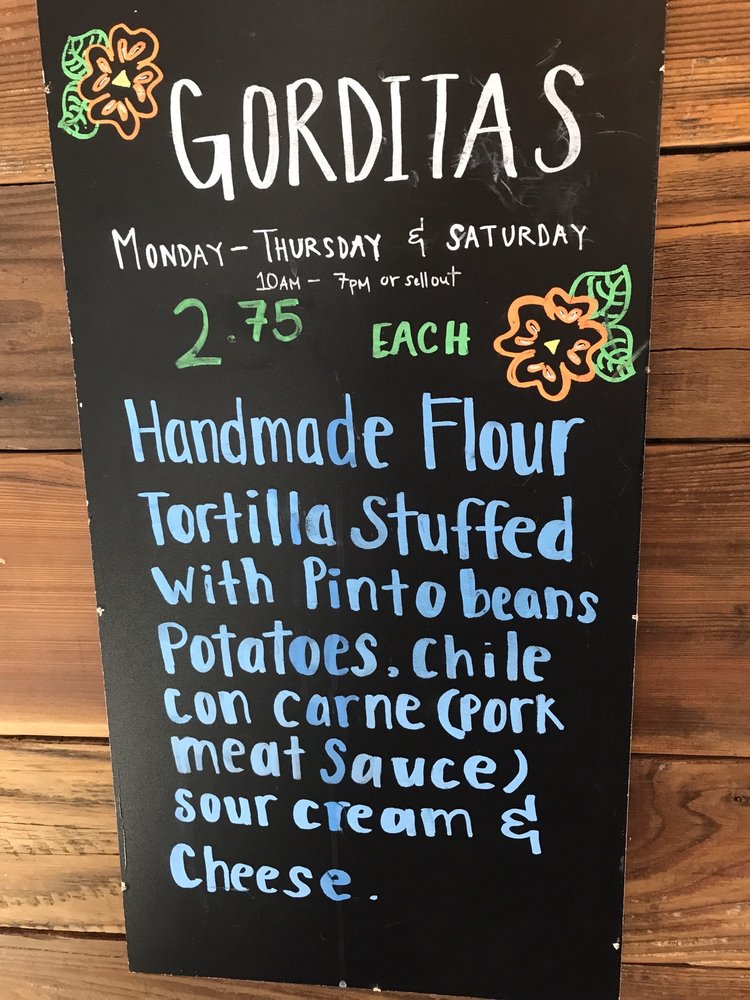 GORDITAS
MONDAY - THURSDAY & SATURDAY
10AM - 7PM or sellout
2.75 EACH
Handmade Flour
Tortilla Stuffed
with Pinto beans
Potatoes, Chile
con carne (pork
meat sauce)
sour cream &
Cheese.